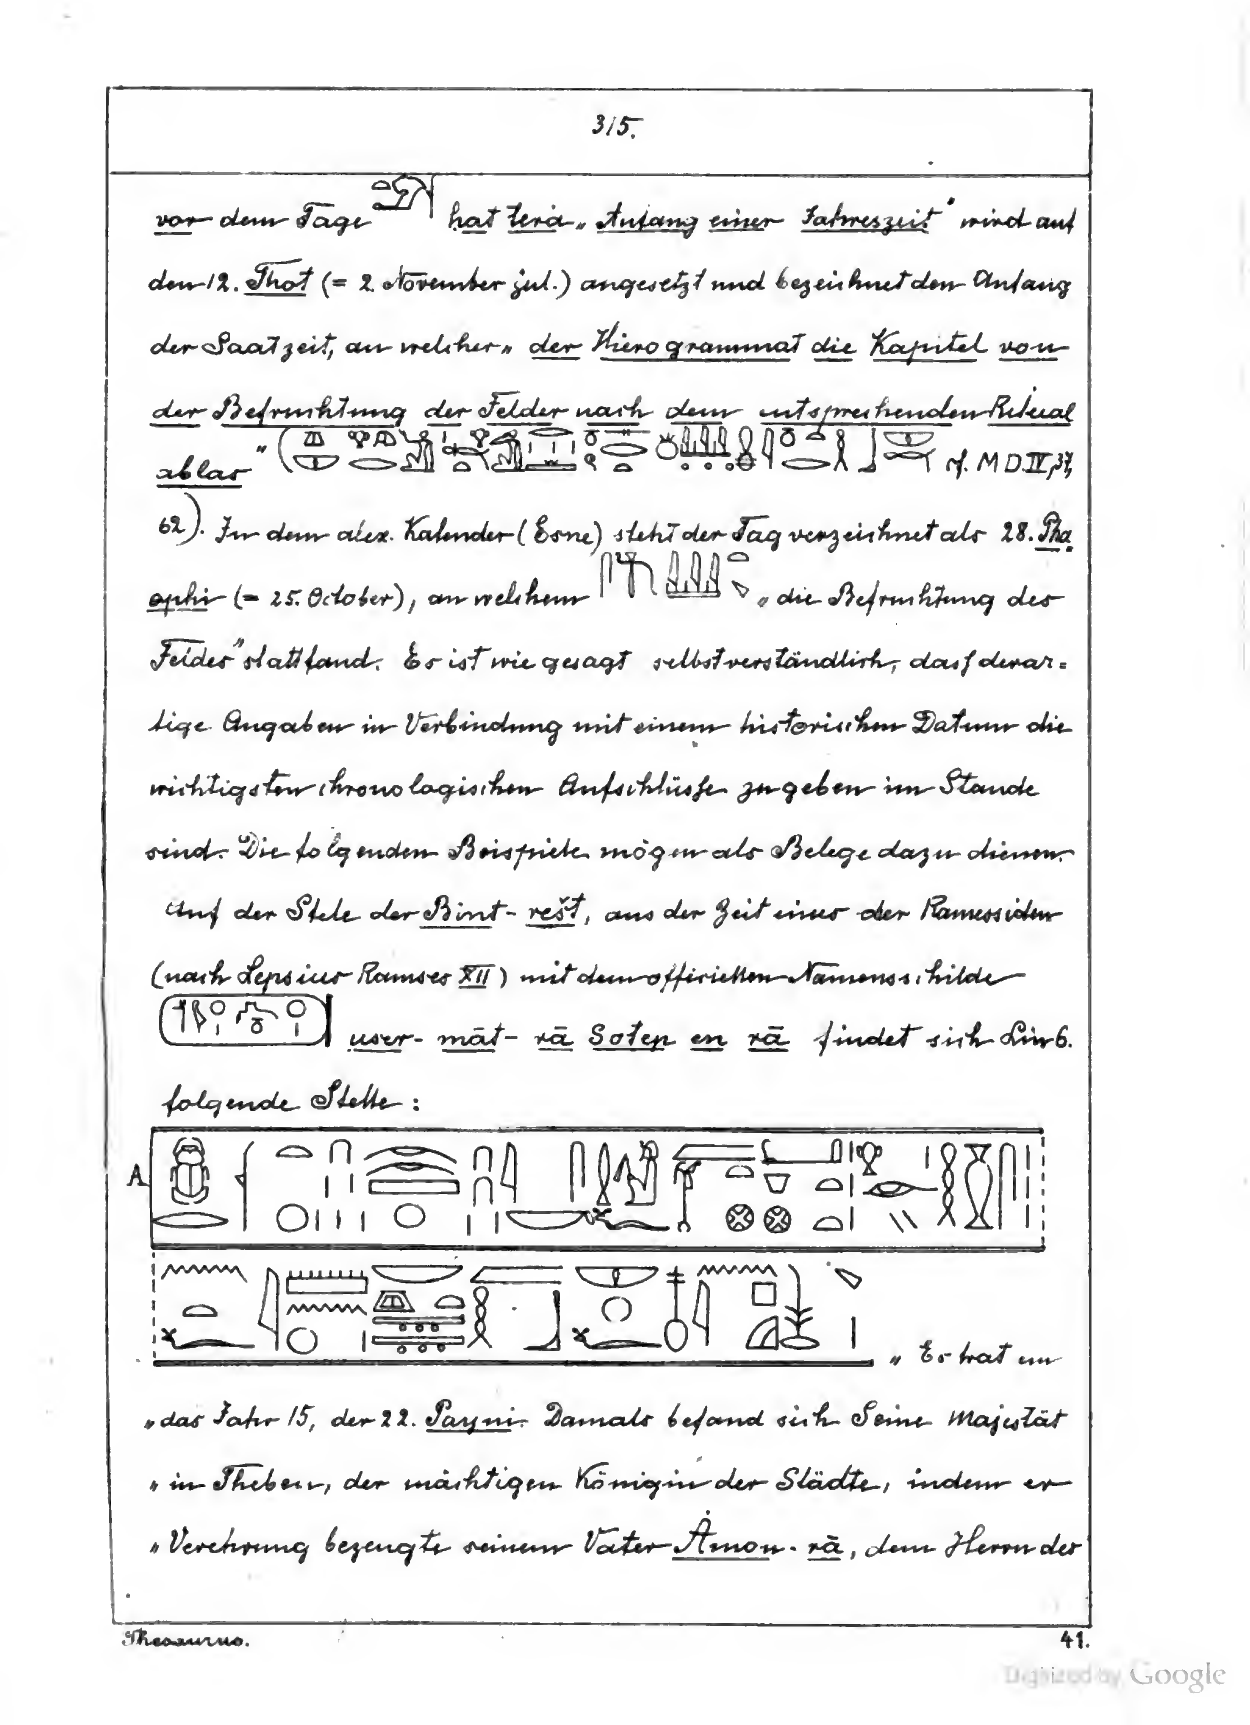 315.
vor dem Tage hat terà „Anfang einer Jahreszeit" wird auf
den 12. Thot (= 2. November jul.) angesetzt und bezeichnet den Anfang
der Saatzeit, an welcher „der Hierogrammat die Kapitel von
der Befruchtung der Felder nach dem entsprechenden Ritual
ablas" ( cf. M D. IV, 37,
62). In dem alex. Kalender (Esne) steht der Tag verzeichnet als 28. Pha
ophi (= 25. October), an welchem „die Befruchtung des
Feldes" stattfand. Es ist wie gesagt selbstverständlich, dass derar=
tige Angaben in Verbindung mit einem historischen Datum die
wichtigsten chronologischen Aufschlüsse zu geben im Stande
sind. Die folgenden Beispiele mögen als Belege dazu dienen.
Auf der Stele der Bint-rešt, aus der Zeit eines der Ramessiden
(nach Lepsius Ramses XII) mit dem officiellen Namensschilde
user-māt-rā Soten en rā findet sich Lin 6.
folgende Stelle:
A.
„Es trat ein
„das Jahr 15, der 22. Payni. Damals befand sich Seine Majestät
„in Theben, der mächtigen Königin der Städte, indem er
„Verehrung bezeugte seinem Vater Åmon-rā, dem Herrn der
Thesaurus.
41.
Digitized by Google